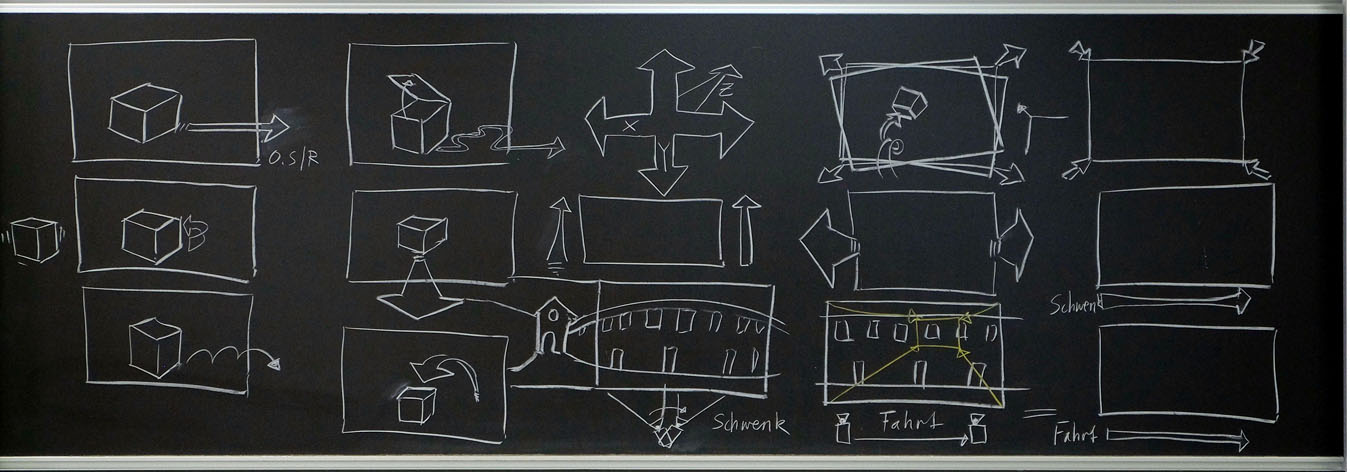 O.S/R
X
Z
Y
Schwenk
Fahrt
Schwenk
Fahrt